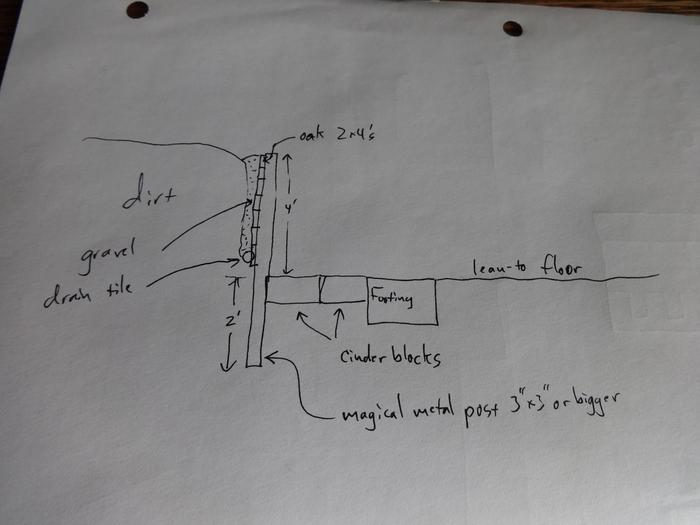 oak 2x4's
dirt
4'
gravel
lean-to floor
drain tile
Footing
2'
cinder blocks
magical metal post 3"x3" or bigger